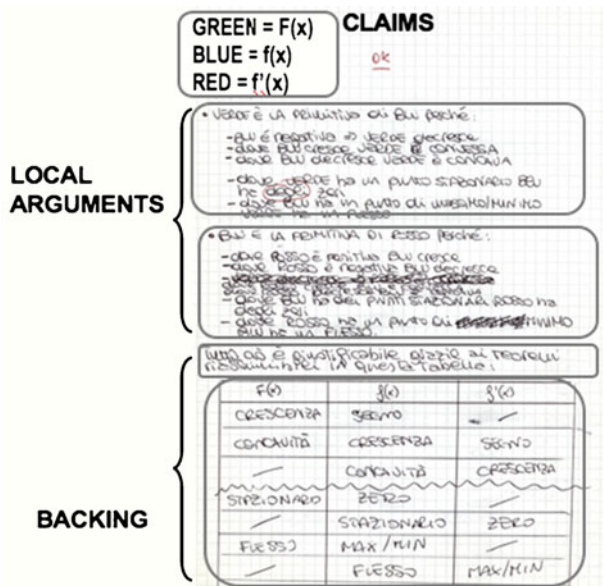 CLAIMS
GREEN = F(x)
BLUE = f(x)
RED = f'(x)
ok
LOCAL
ARGUMENTS
• VERDE È LA PRIMITIVA DI BLU perché:
- BLU È negativa => VERDE decresce
- dove BLU cresce VERDE È CONVESSA
- dove BLU decresce VERDE È CONCAVA
- dove VERDE ha un punto STAZIONARIO BLU
ha degli zeri
- dove BLU ha un punto di MASSIMO/MINIMO
VERDE ha un FLESSO
• BLU È LA PRIMITIVA DI ROSSO perché:
- dove ROSSO è positiva BLU cresce
- dove ROSSO è negativa BLU decresce
- dove BLU ha dei PUNTI STAZIONARI ROSSO ha
degli zeri
- dove ROSSO ha un punto di MINIMO
BLU ha un FLESSO.
BACKING
tutto ciò è giustificabile grazie ai teoremi
riassumibili in questa tabella:
F(x) f(x) f'(x)
CRESCENZA SEGNO /
CONCAVITÀ CRESCENZA SEGNO
/ CONCAVITÀ CRESCENZA
STAZIONARIO ZERO /
/ STAZIONARIO ZERO
FLESSO MAX/MIN /
/ FLESSO MAX/MIN